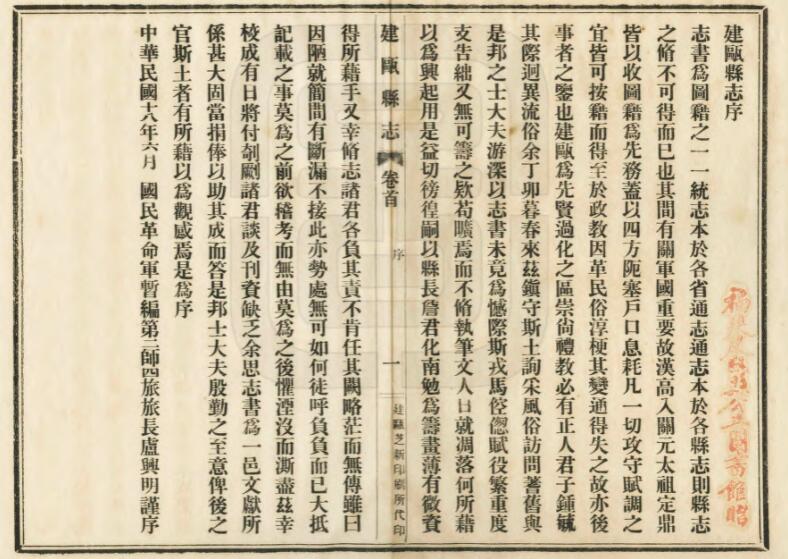 建甌縣志序
志書爲圖籍之一一統志本於各省通志通志本於各縣志則縣志
之脩不可得而已也其間有關軍國重要故漢高入關元太祖定鼎
皆以收圖籍爲先務蓋以四方阨塞戶口息耗凡一切攻守賦調之
宜皆可按籍而得至於政教因革民俗淳梗其變通得失之故亦後
事者之鑒也建甌爲先賢過化之區崇尚禮教必有正人君子鍾毓
其際迥異流俗余丁卯暮春來茲鎭守斯土詢采風俗訪問著舊與
是邦之士大夫游深以志書未竟爲憾際斯戎馬倥傯賦役繁重度
支告絀又無可籌之欵苟曠焉而不脩執筆文人日就凋落何所藉
以爲興起用是益切徬徨嗣以縣長詹君化南勉爲籌畫薄有微資
建甌縣志 卷首 序 一 建甌芝新印刷所代印
得所藉手又幸脩志諸君各負其責不肯任其闕略茫而無傳雖曰
因陋就簡間有斷漏不接此亦勢處無可如何徒呼負負而已大抵
記載之事莫爲之前欲稽考而無由莫爲之後懼湮沒而澌盡茲幸
校成有日將付剞劂諸君談及刊資缺乏余思志書爲一邑文獻所
係甚大固當捐俸以助其成而答是邦士大夫殷勤之至意俾後之
官斯土者有所藉以爲觀感焉是爲序
中華民國十八年六月 國民革命軍暫編第二師四旅旅長盧興明謹序